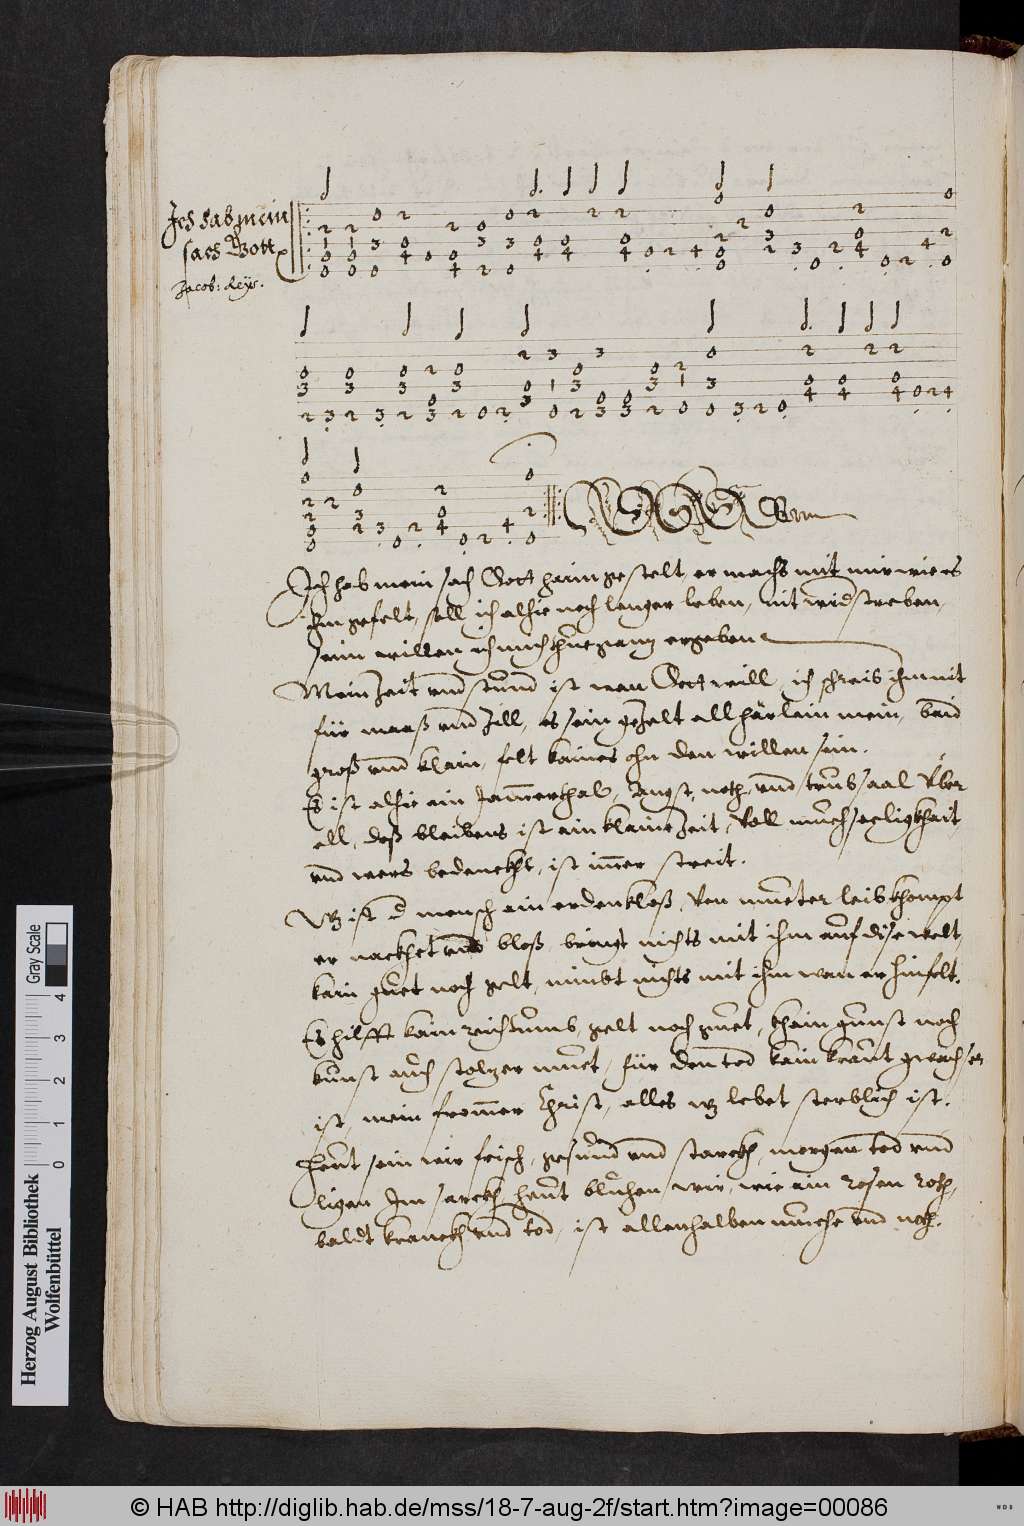 Ich hab mein
sach Gott
Jacob: Reys.
Ich hab mein sach Gott haim gestelt, er machs mit mir wie es
ihm gefelt, soll ich alhie noch lenger leben, nit widstreben,
seim willen ich mich thue gantz ergeben
Mein Zeit vnd stund ist wan Gott will, ich schreib ihm nit
für maaß vnd Zill, es sein gezelt all härlain mein, baid
groß vnd klain, felt kaines ohn den willen sein.
Es ist alhie ain Jammerthal, Angst, noth, vnd trübsaal Über
all, deß bleibens ist ain klaine Zeit, Voll müehseeligkhait
vnd wers bedenckht, ist immer streit.
Wz ist d mensch ain erdenkloß, Von mueter leib khompt
er nackhet vnd bloß, bringt nichts mit ihm auf dise welt,
kain guet noch gelt, nimbt nichts mit ihm wan er hinfelt.
Es hilfft kain reichtumb, gelt noch guet, khain gunst noch
kunst auch stoltzer muet, für den tod kain kraut gwachsen
ist, mein frommer Christ, alles wz lebet sterblich ist.
Heut sein wir frisch, gesund vnd starckh, morgen tod vnd
ligen Im sarckh, heut blühen wir, wie ain rosen roth,
baldt kranckh vnd tod, ist allenthalben müehe vnd noth.
Gray Scale
4
3
2
1
0
Herzog August Bibliothek
Wolfenbüttel
© HAB http://diglib.hab.de/mss/18-7-aug-2f/start.htm?image=00086